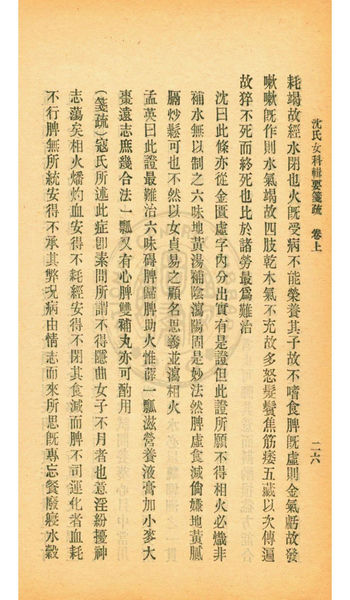 沈氏女科輯要箋疏 卷上
二六
耗竭故經水閉也火既受病不能榮養其子故不嗜食脾既虛則金氣虧故發
嗽嗽既作則水氣竭故四肢乾木氣不充故多怒髮鬢焦筋痿五藏以次傳遍
故猝不死而終死也比於諸勞最爲難治
沈曰此條亦從金匱虛字內分出實有是證但此證所願不得相火必熾非
補水無以制之六味地黃湯補陰瀉陽固是妙法然脾虛食減倘嫌地黃膩
膈炒鬆可也不然以女貞易之顧名思義並瀉相火
孟英曰此證最難治六味碍脾歸脾助火惟薛一瓢滋營養液膏加小麥大
棗遠志庶幾合法一瓢又有心脾雙補丸亦可酌用
(箋疏)寇氏所述此症卽素問所謂不得隱曲女子不月者也意淫紛擾神
志蕩矣相火燔灼血安得不耗經安得不閉其食減而脾不司運化者血耗
不行脾無所統安得不承其弊况病由情志而來所思既專忘餐廢寢水穀